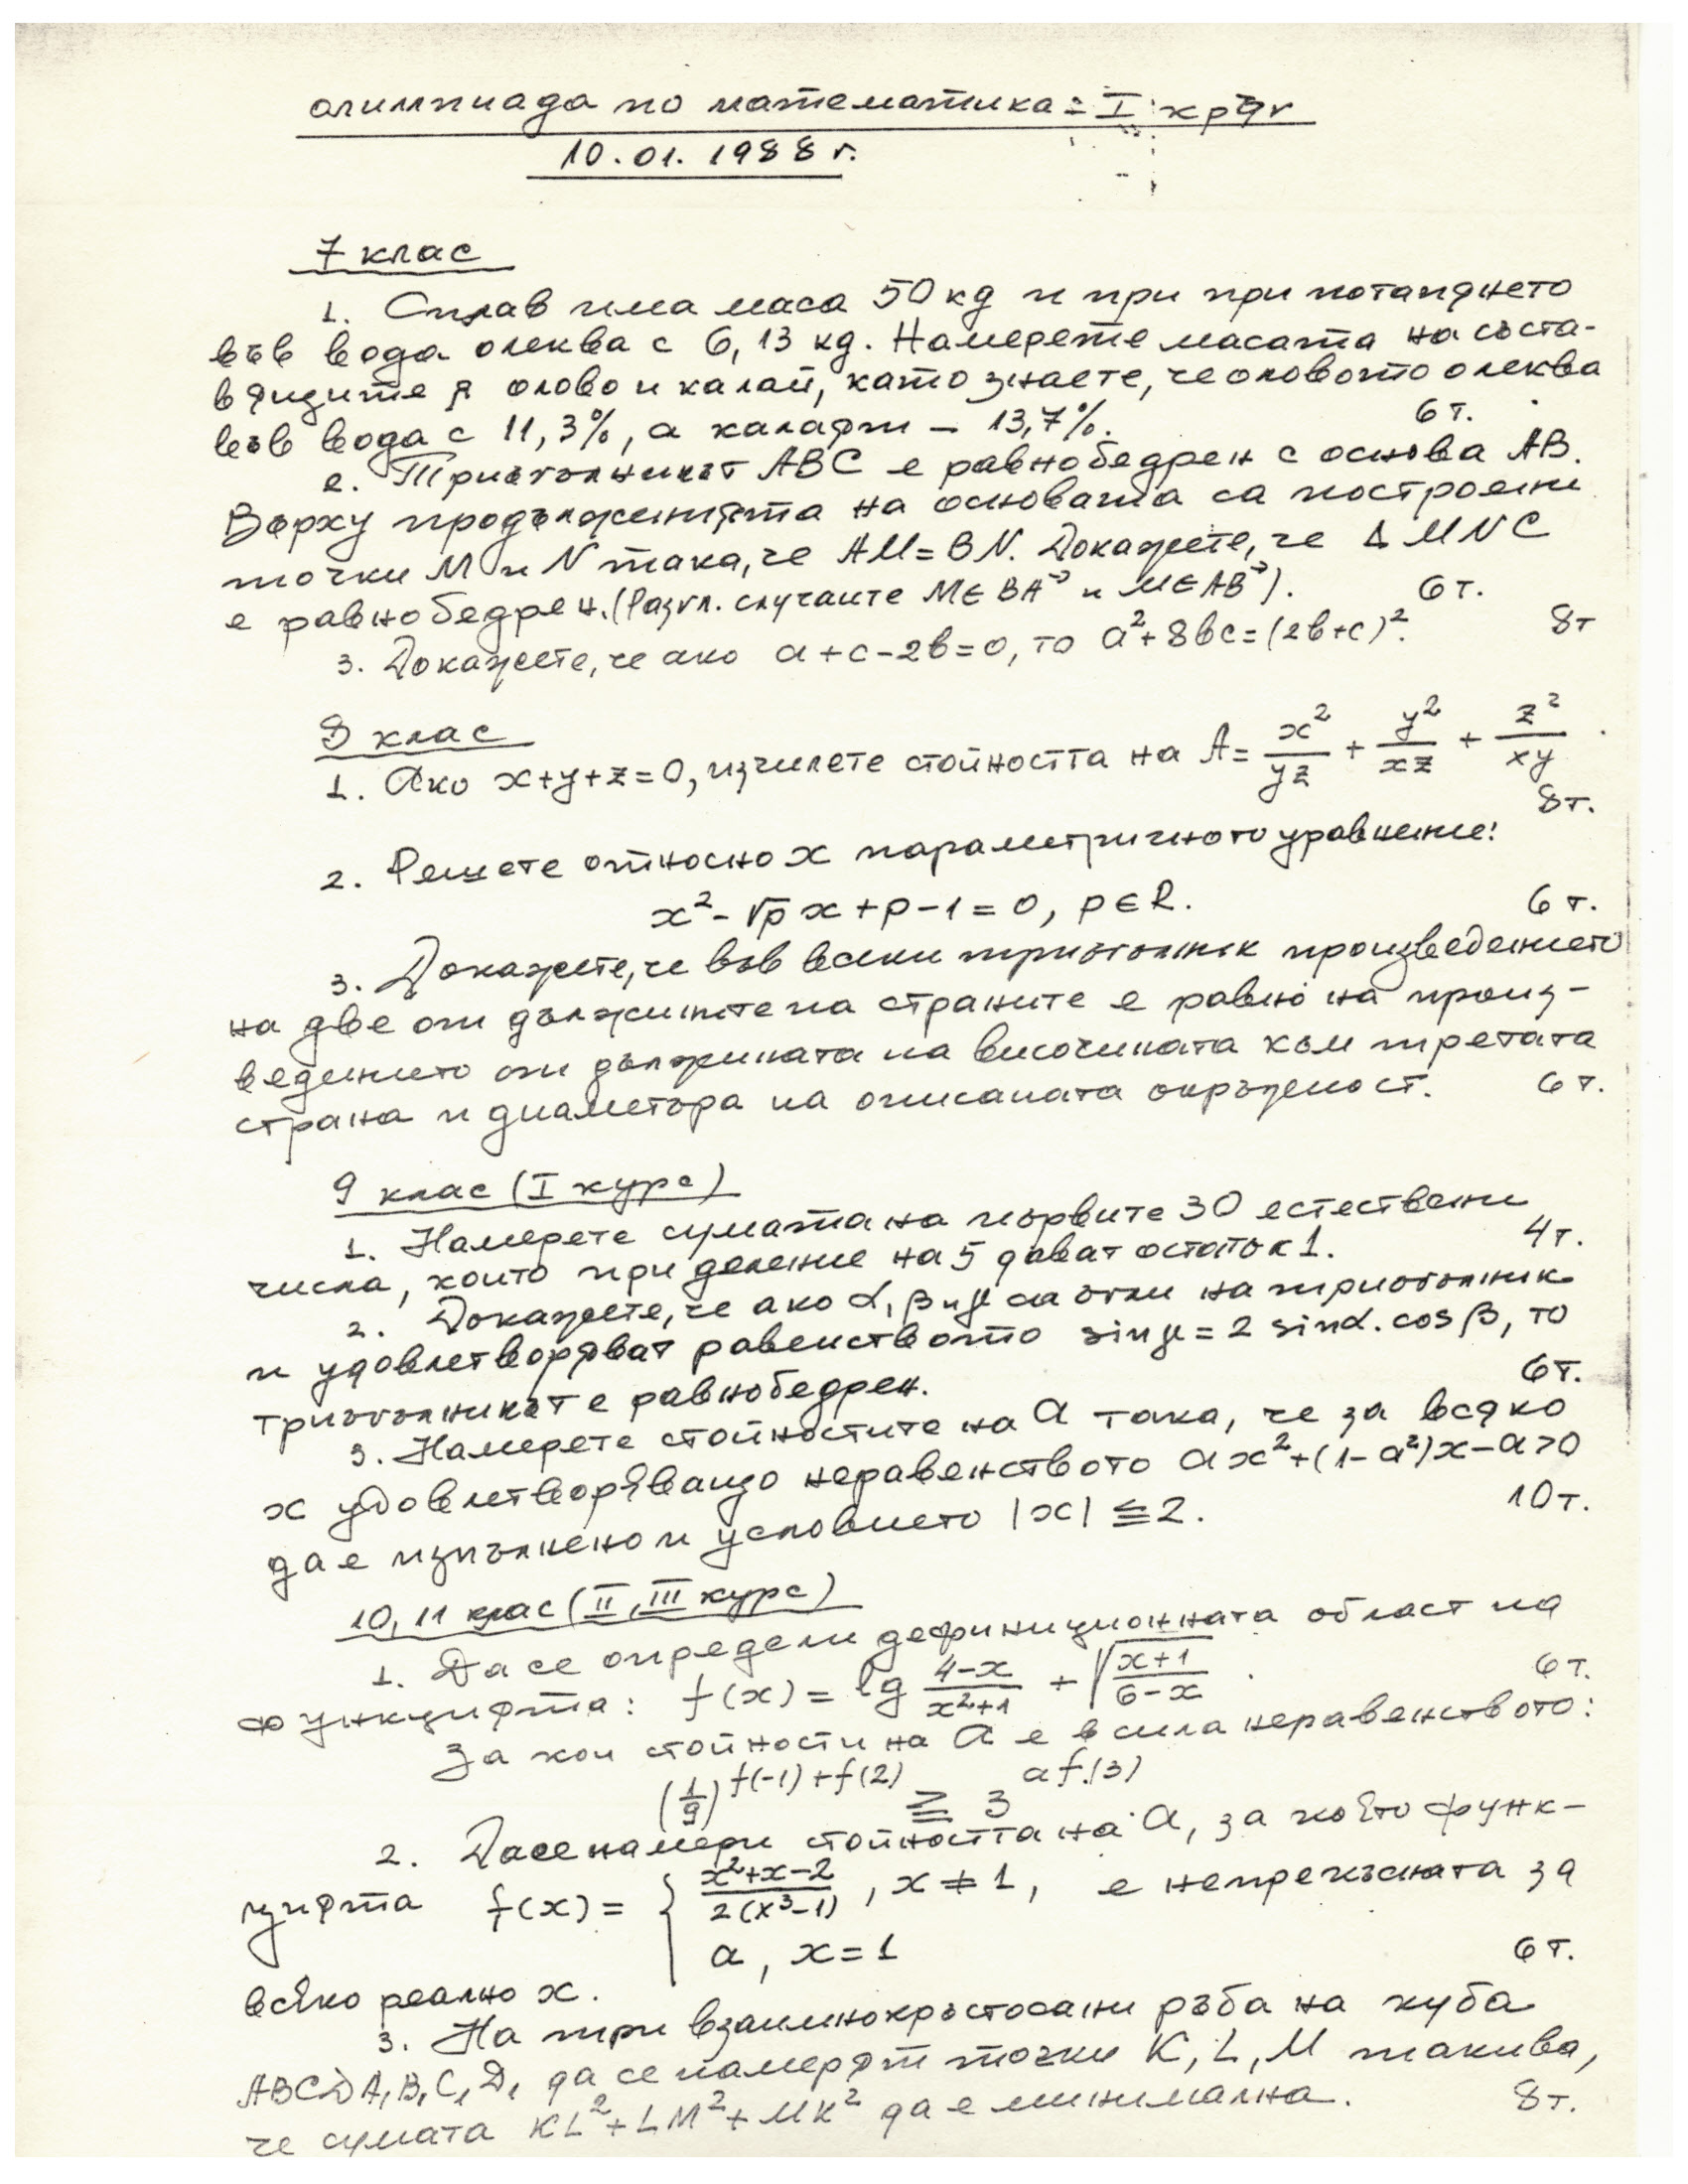 олимпиада по математика - I кръг
10.01.1988 г.
7 клас
1. Сплав има маса 50 кg и при при потапянето
във вода олеква с 6,13 кg. Намерете масата на съста-
вящите я олово и калай, като знаете, че оловото олеква
във вода с 11,3%, а калаят - 13,7%. 6 т.
2. Триъгълникът ABC е равнобедрен с основа AB.
Върху продълженията на основата са построени
точки M и N така, че AM=BN. Докажете, че Δ MNC
е равнобедрен. (Разгл. случаите M∈BA→ и M∈AB→). 6 т.
3. Докажете, че ако a+c-2b=0, то a²+8bc=(2b+c)². 8 т
8 клас
1. Ако x+y+z=0, изчислете стойността на A= x²/yz + y²/xz + z²/xy .
8 т.
2. Решете относно x параметричното уравнение:
x²-√p x+p-1=0, p∈R. 6 т.
3. Докажете, че във всеки триъгълник произведението
на две от дължините на страните е равно на произ-
ведението от дължината на височината към третата
страна и диаметъра на описаната окръжност. 6 т.
9 клас (I курс)
1. Намерете сумата на първите 30 естествени
числа, които при деление на 5 дават остатък 1. 4 т.
2. Докажете, че ако α, β и γ са ъгли на триъгълник
и удовлетворяват равенството sin γ = 2 sin α . cos β, то
триъгълникът е равнобедрен. 6 т.
3. Намерете стойностите на a така, че за всяко
x удовлетворяващо неравенството ax²+(1-a²)x-a>0
да е изпълнено и условието |x| ≦ 2. 10 т.
10, 11 клас (II, III курс)
1. Да се определи дефиниционната област на
функцията: f(x) = lg (4-x)/(x²+1) + √((x+1)/(6-x)) . 6 т.
За кои стойности на a е в сила неравенството:
(1/9)^(f(-1)+f(2)) ≧ 3^(af(3))
2. Да се намери стойността на a, за която функ-
цията f(x) = { (x²+x-2)/(2(x³-1)), x ≠ 1, е непрекъсната за
a, x = 1 6 т.
всяко реално x.
3. На три взаимнокръстосани ръба на куба
ABCDA₁B₁C₁D₁ да се намерят точки K, L, M такива,
че сумата KL²+LM²+MK² да е минимална. 8 т.